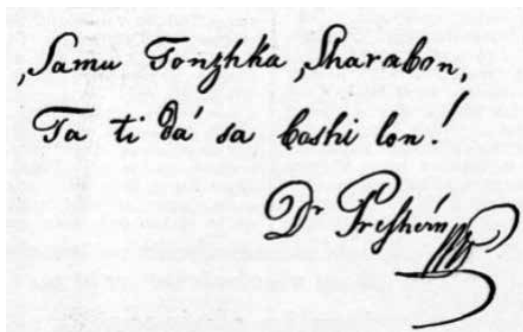 ,Samu Tonzhka ,Sharabon,
Ta ti dá sa boshi lon!
Dr Preshérn